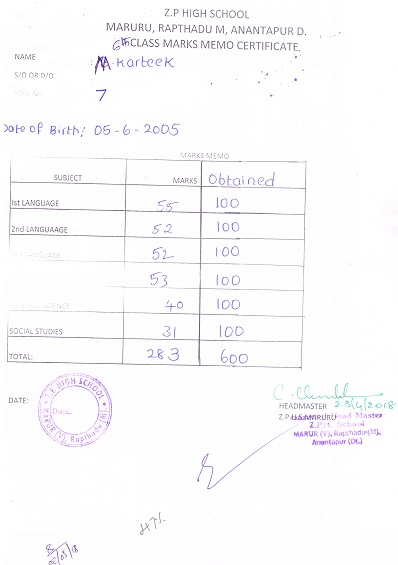 Z.P HIGH SCHOOL
MARURU, RAPTHADU M, ANANTAPUR D.
6th CLASS MARKS MEMO CERTIFICATE.
NAME M. Karteek
S/O OR D/O
ROLL No. 7
Date of Birth: 05-6-2005
MARKS MEMO
SUBJECT MARKS Obtained
1st LANGUAGE 55 100
2nd LANGUAAGE 52 100
LANGUAGE 52 100
53 100
SCIENCE 40 100
SOCIAL STUDIES 31 100
TOTAL: 283 600
DATE:
Z.P. HIGH SCHOOL
Date.
MARUR (V), Rapthadu
HEADMASTER 23/4/2018
Z.P.H.S MARURU Head Master
Z.P.H. School
MARUR (V), Rapthadu(M),
Anantapur (Dt.)
47%